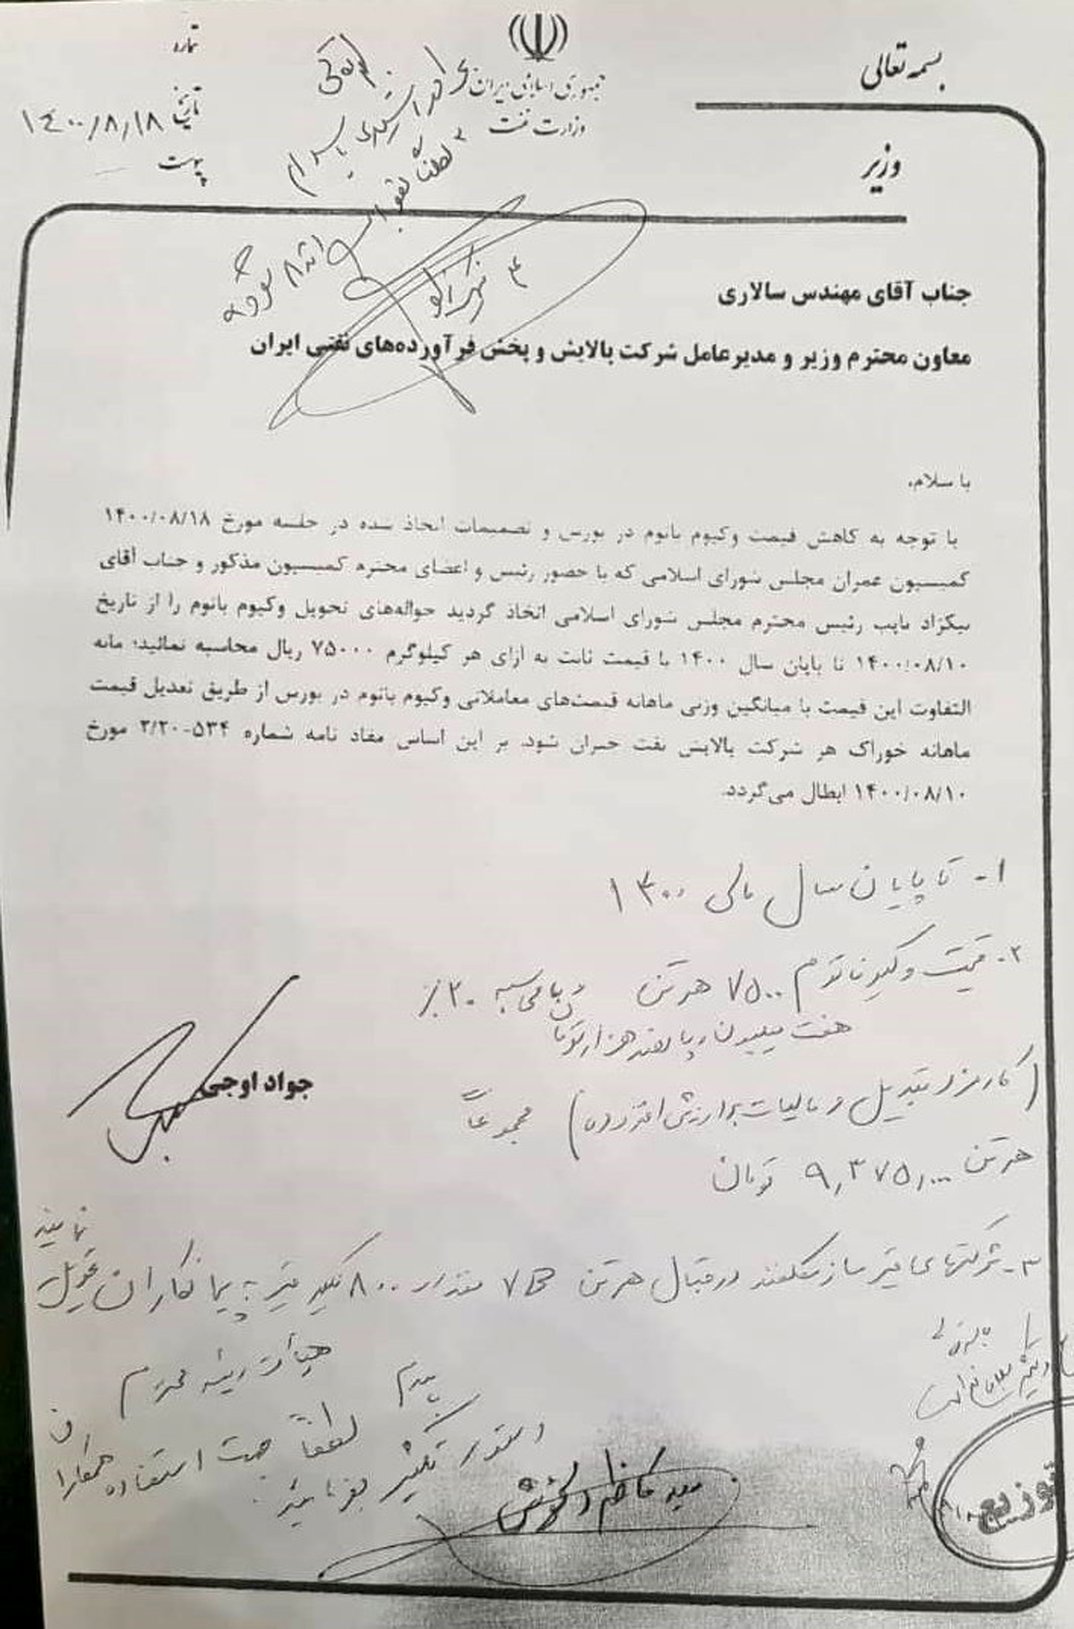 بسمه تعالی
جمهوری اسلامی ایران
وزارت نفت
وزیر
شماره
تاریخ ۱۴۰۰/۸/۱۸
پیوست
جناب آقای مهندس سالاری
معاون محترم وزیر و مدیرعامل شرکت پالایش و پخش فرآورده‌های نفتی ایران
با سلام،
با توجه به کاهش قیمت وکیوم باتوم در بورس و تصمیمات اتخاذ شده در جلسه مورخ ۱۴۰۰/۰۸/۱۸
کمیسیون عمران مجلس شورای اسلامی که با حضور رئیس و اعضای محترم کمیسیون مذکور و جناب آقای
نیکزاد نایب رئیس محترم مجلس شورای اسلامی اتخاذ گردید حواله‌های تحویل وکیوم باتوم را از تاریخ
۱۴۰۰/۰۸/۱۰ تا پایان سال ۱۴۰۰ با قیمت ثابت به ازای هر کیلوگرم ۷۵۰۰۰ ریال محاسبه نمائید؛ مابه
التفاوت این قیمت با میانگین وزنی ماهانه قیمت‌های معاملاتی وکیوم باتوم در بورس از طریق تعدیل قیمت
ماهانه خوراک هر شرکت پالایش نفت جبران شود. بر این اساس مفاد نامه شماره ۵۳۴-۲/۲۰ مورخ
۱۴۰۰/۰۸/۱۰ ابطال می‌گردد.
۱- تا پایان سال مالی ۱۴۰۰
۲- قیمت وکیوم باتوم ۷۵۰۰ هر تن و با محاسبه ۲۰٪
هفت میلیون و پانصد هزار تومان
جواد اوجی
(کارمزد تبدیل و مالیات بر ارزش افزوده) مجموعاً
هر تن ۹,۳۷۵,۰۰۰ تومان
۳- شرکتهای قیر ساز مکلفند در قبال هر تن مقدار ۸۰۰ کیلو قیر به پیمانکاران تحویل
نمایند
هیأت رئیسه محترم
لطفاً جهت استفاده همکاران
دستور تکثیر بفرمایید.
سید کاظم دلخوش
توزیع